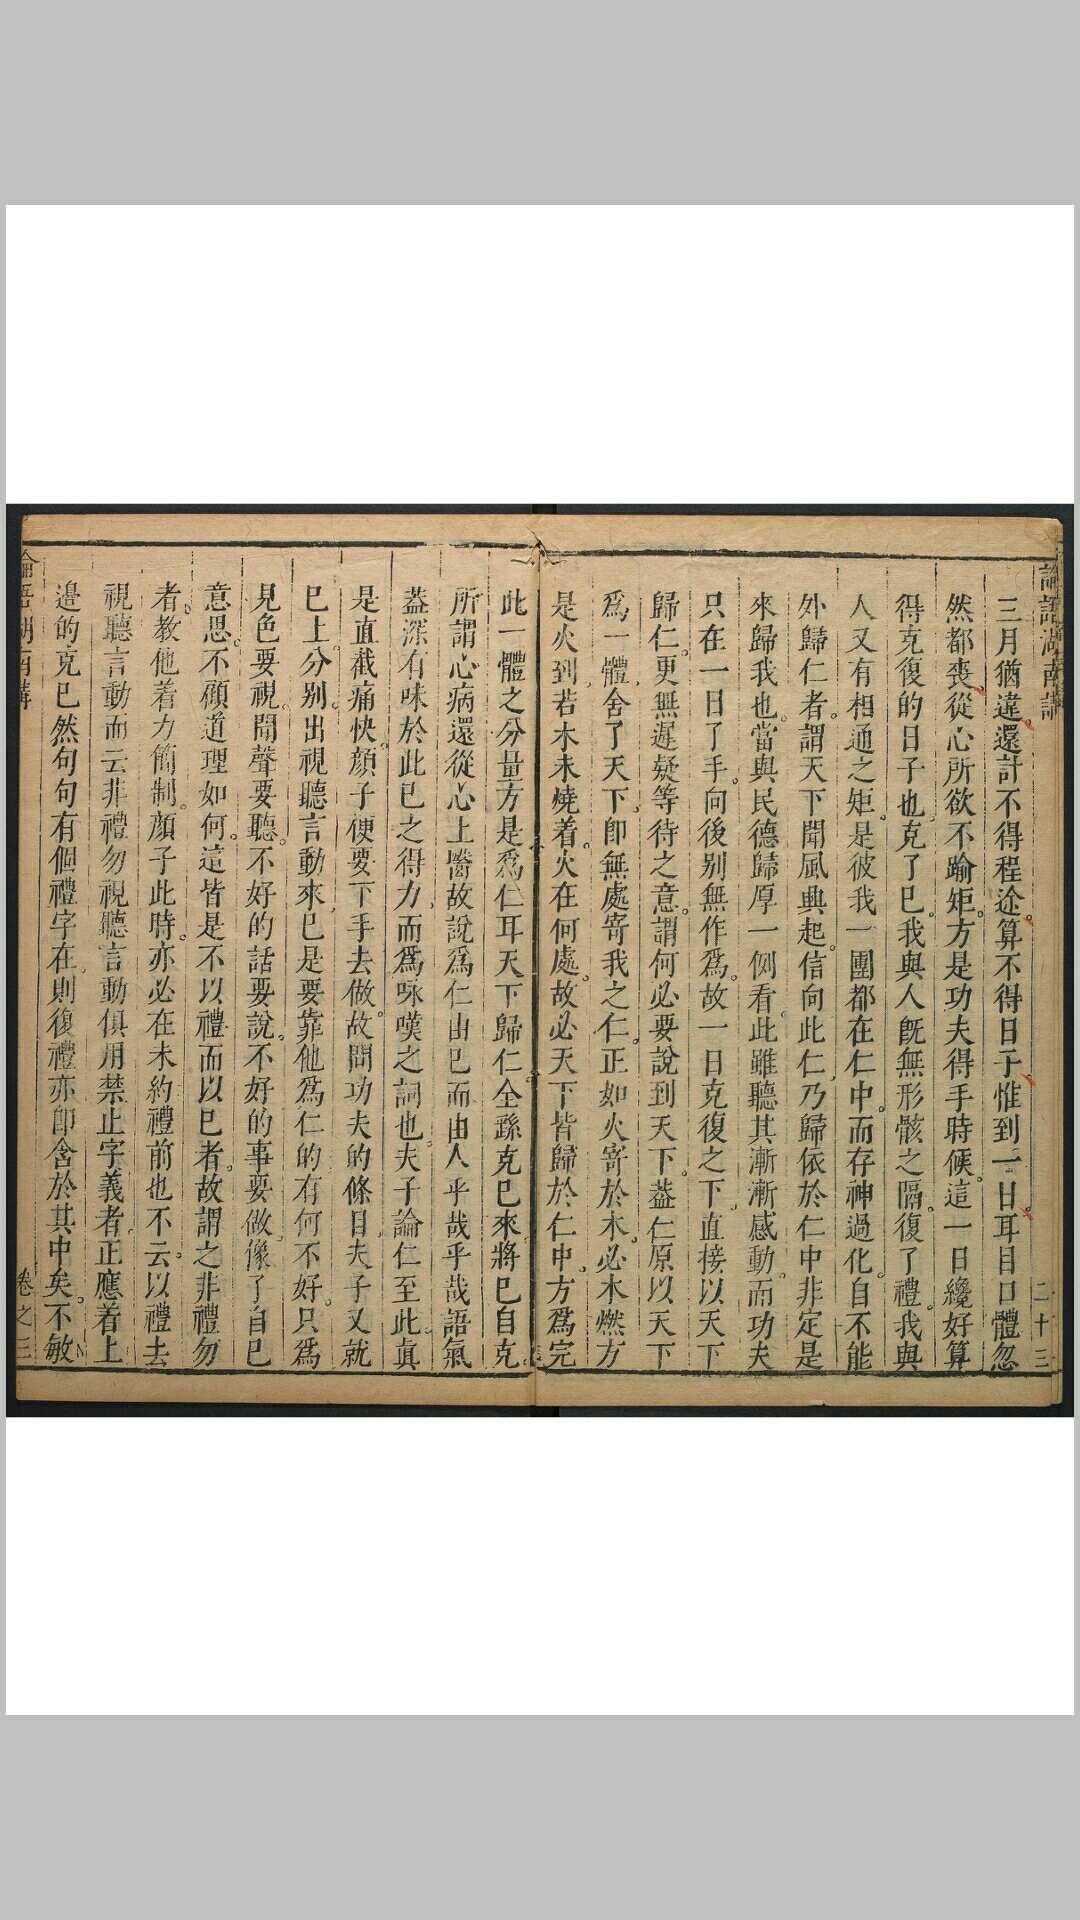 論語湖南講
二十三
三月猶違還計不得程途算不得日子惟到一日耳目口體忽
然都喪從心所欲不踰矩方是功夫得手時候這一日纔好算
得克復的日子也克了已我與人旣無形骸之隔復了禮我與
人又有相通之矩是彼我一團都在仁中而存神過化自不能
外歸仁者謂天下聞風興起信向此仁乃歸依於仁中非定是
來歸我也當與民德歸厚一例看此雖聽其漸漸感動而功夫
只在一日了手向後别無作爲故一日克復之下直接以天下
歸仁更無遲疑等待之意謂何必要說到天下葢仁原以天下
爲一體舍了天下卽無處寄我之仁正如火寄於木必木燃方
是火到若木未燒着火在何處故必天下皆歸於仁中方爲完
此一體之分量方是爲仁耳天下歸仁全繇克已來將已自克
所謂心病還從心上醫故說爲仁由已而由人乎哉乎哉語氣
葢深有味於此已之得力而爲咏嘆之詞也夫子論仁至此眞
是直截痛快顔子便要下手去做故問功夫的條目夫子又就
已上分别出視聽言動來已是要靠他爲仁的有何不好只爲
見色要視聞聲要聽不好的話要說不好的事要做像了自已
意思不顧道理如何這皆是不以禮而以已者故謂之非禮勿
者教他着力簡制顔子此時亦必在未約禮前也不云以禮去
視聽言動而云非禮勿視聽言動俱用禁止字義者正應着上
邊的克已然句句有個禮字在則復禮亦卽含於其中矣不敏
論語湖南講
卷之三